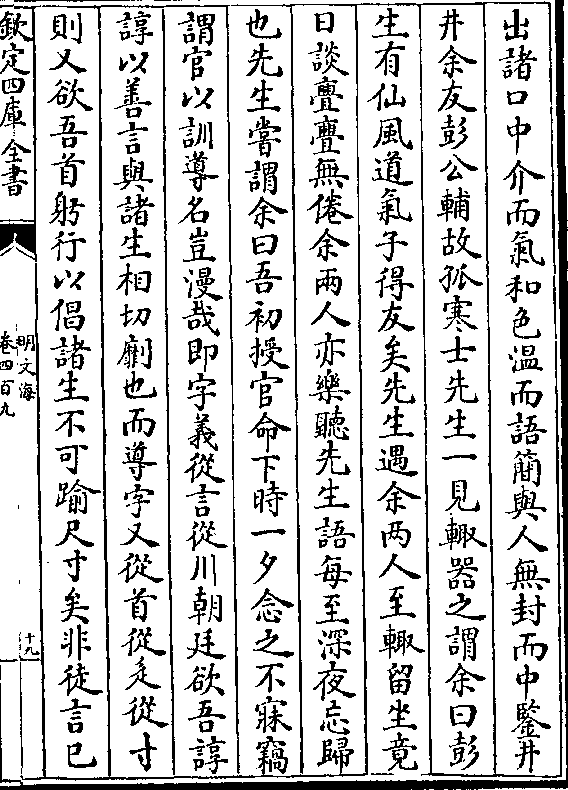 出諸口中介而氣和色溫而語簡與人無封而中鑒井
井余友彭公輔故孤寒士先生一見輙器之謂余曰彭
生有仙風道氣子得友矣先生遇余两人至輙留坐竟
日談亹亹無倦余兩人亦樂聽先生語每至深夜忘歸
也先生嘗謂余曰吾初授官命下時一夕念之不寐竊
謂官以訓導名豈漫哉即字義從言從川朝廷欲吾諄
諄以善言與諸生相切劘也而導字又從首從辵從寸
則又欲吾首躬行以倡諸生不可踰尺寸矣非徒言已
欽定四庫全書
明文海
卷四百九
十九